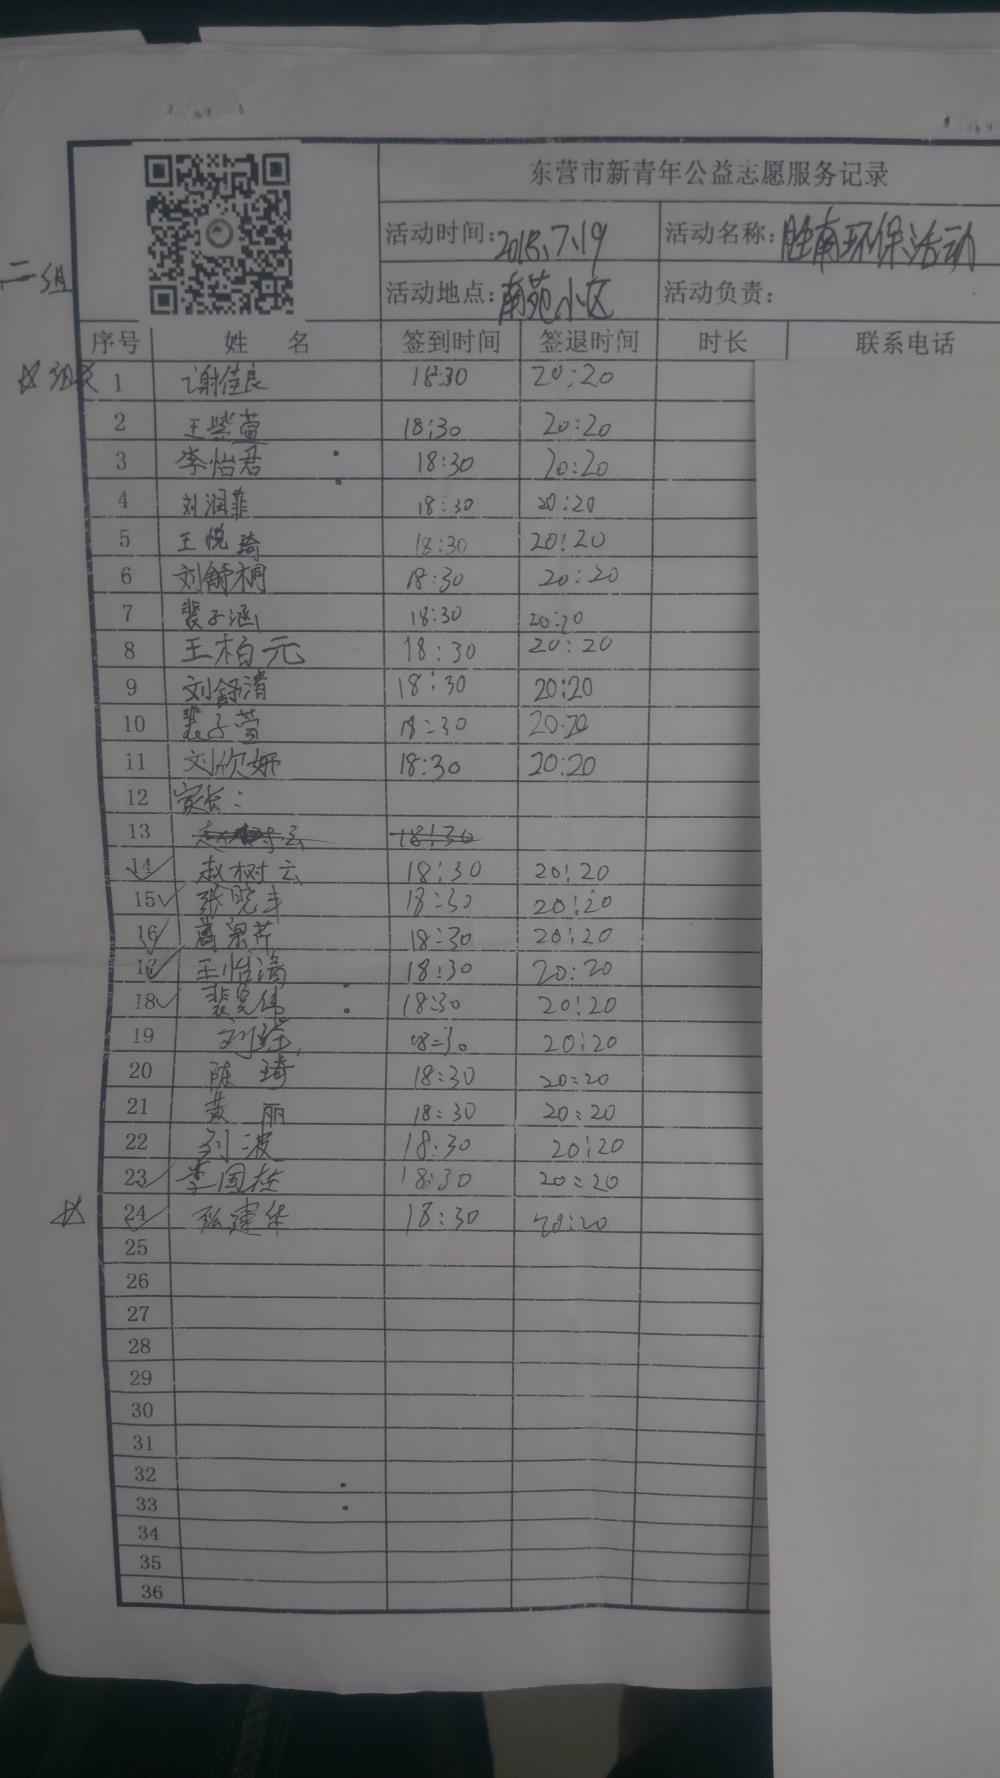 东营市新青年公益志愿服务记录
活动时间:2018.7.19 活动名称:胜南环保活动
二组
活动地点:南苑小区 活动负责:
序号 姓 名 签到时间 签退时间 时长 联系电话
☆组长 1 谢佳良 18:30 20:20
2 王紫萱 18:30 20:20
3 李怡君 18:30 20:20
4 刘润菲 18:30 20:20
5 王悦琦 18:30 20:20
6 刘舒桐 18:30 20:20
7 裴子涵 18:30 20:20
8 王柏元 18:30 20:20
9 刘舒清 18:30 20:20
10 裴子萱 18:30 20:20
11 刘欣妍 18:30 20:20
12 家长:
13 18:30
14 赵树云 18:30 20:20
15 张晓丰 18:30 20:20
16 18:30 20:20
17 王怡清 18:30 20:20
18 裴昊伟 18:30 20:20
19 18:30 20:20
20 陈琦 18:30 20:20
21 黄丽 18:30 20:20
22 刘波 18:30 20:20
23 李国栋 18:30 20:20
☆ 24 张建华 18:30 20:20
25
26
27
28
29
30
31
32
33
34
35
36